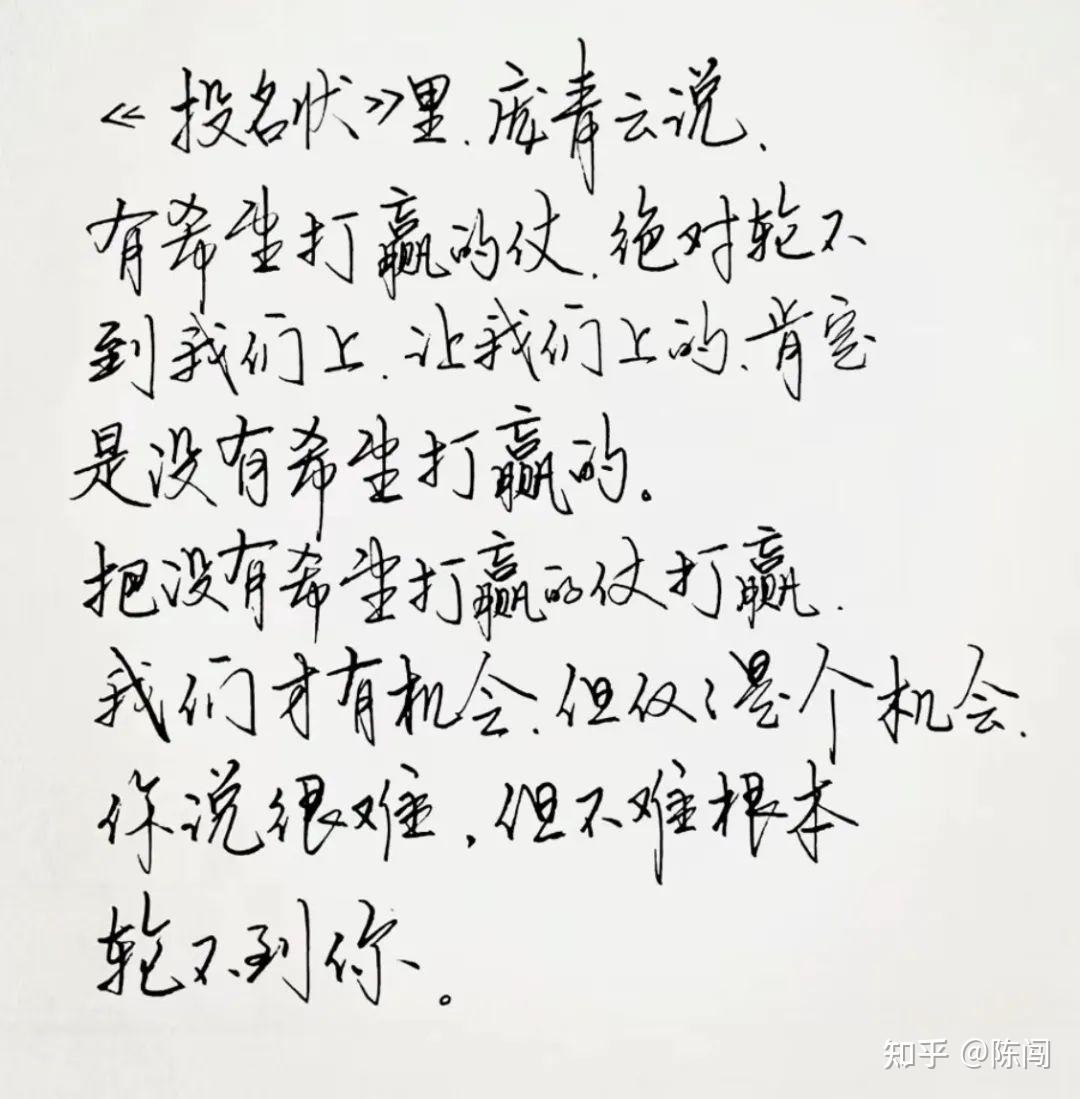 《投名状》里.庞青云说.
有希望打赢的仗.绝对轮不
到我们上.让我们上的.肯定
是没有希望打赢的。
把没有希望打赢的仗打赢.
我们才有机会.但仅仅是个机会.
你说很难，但不难根本
轮不到你。
知乎 @陈闯